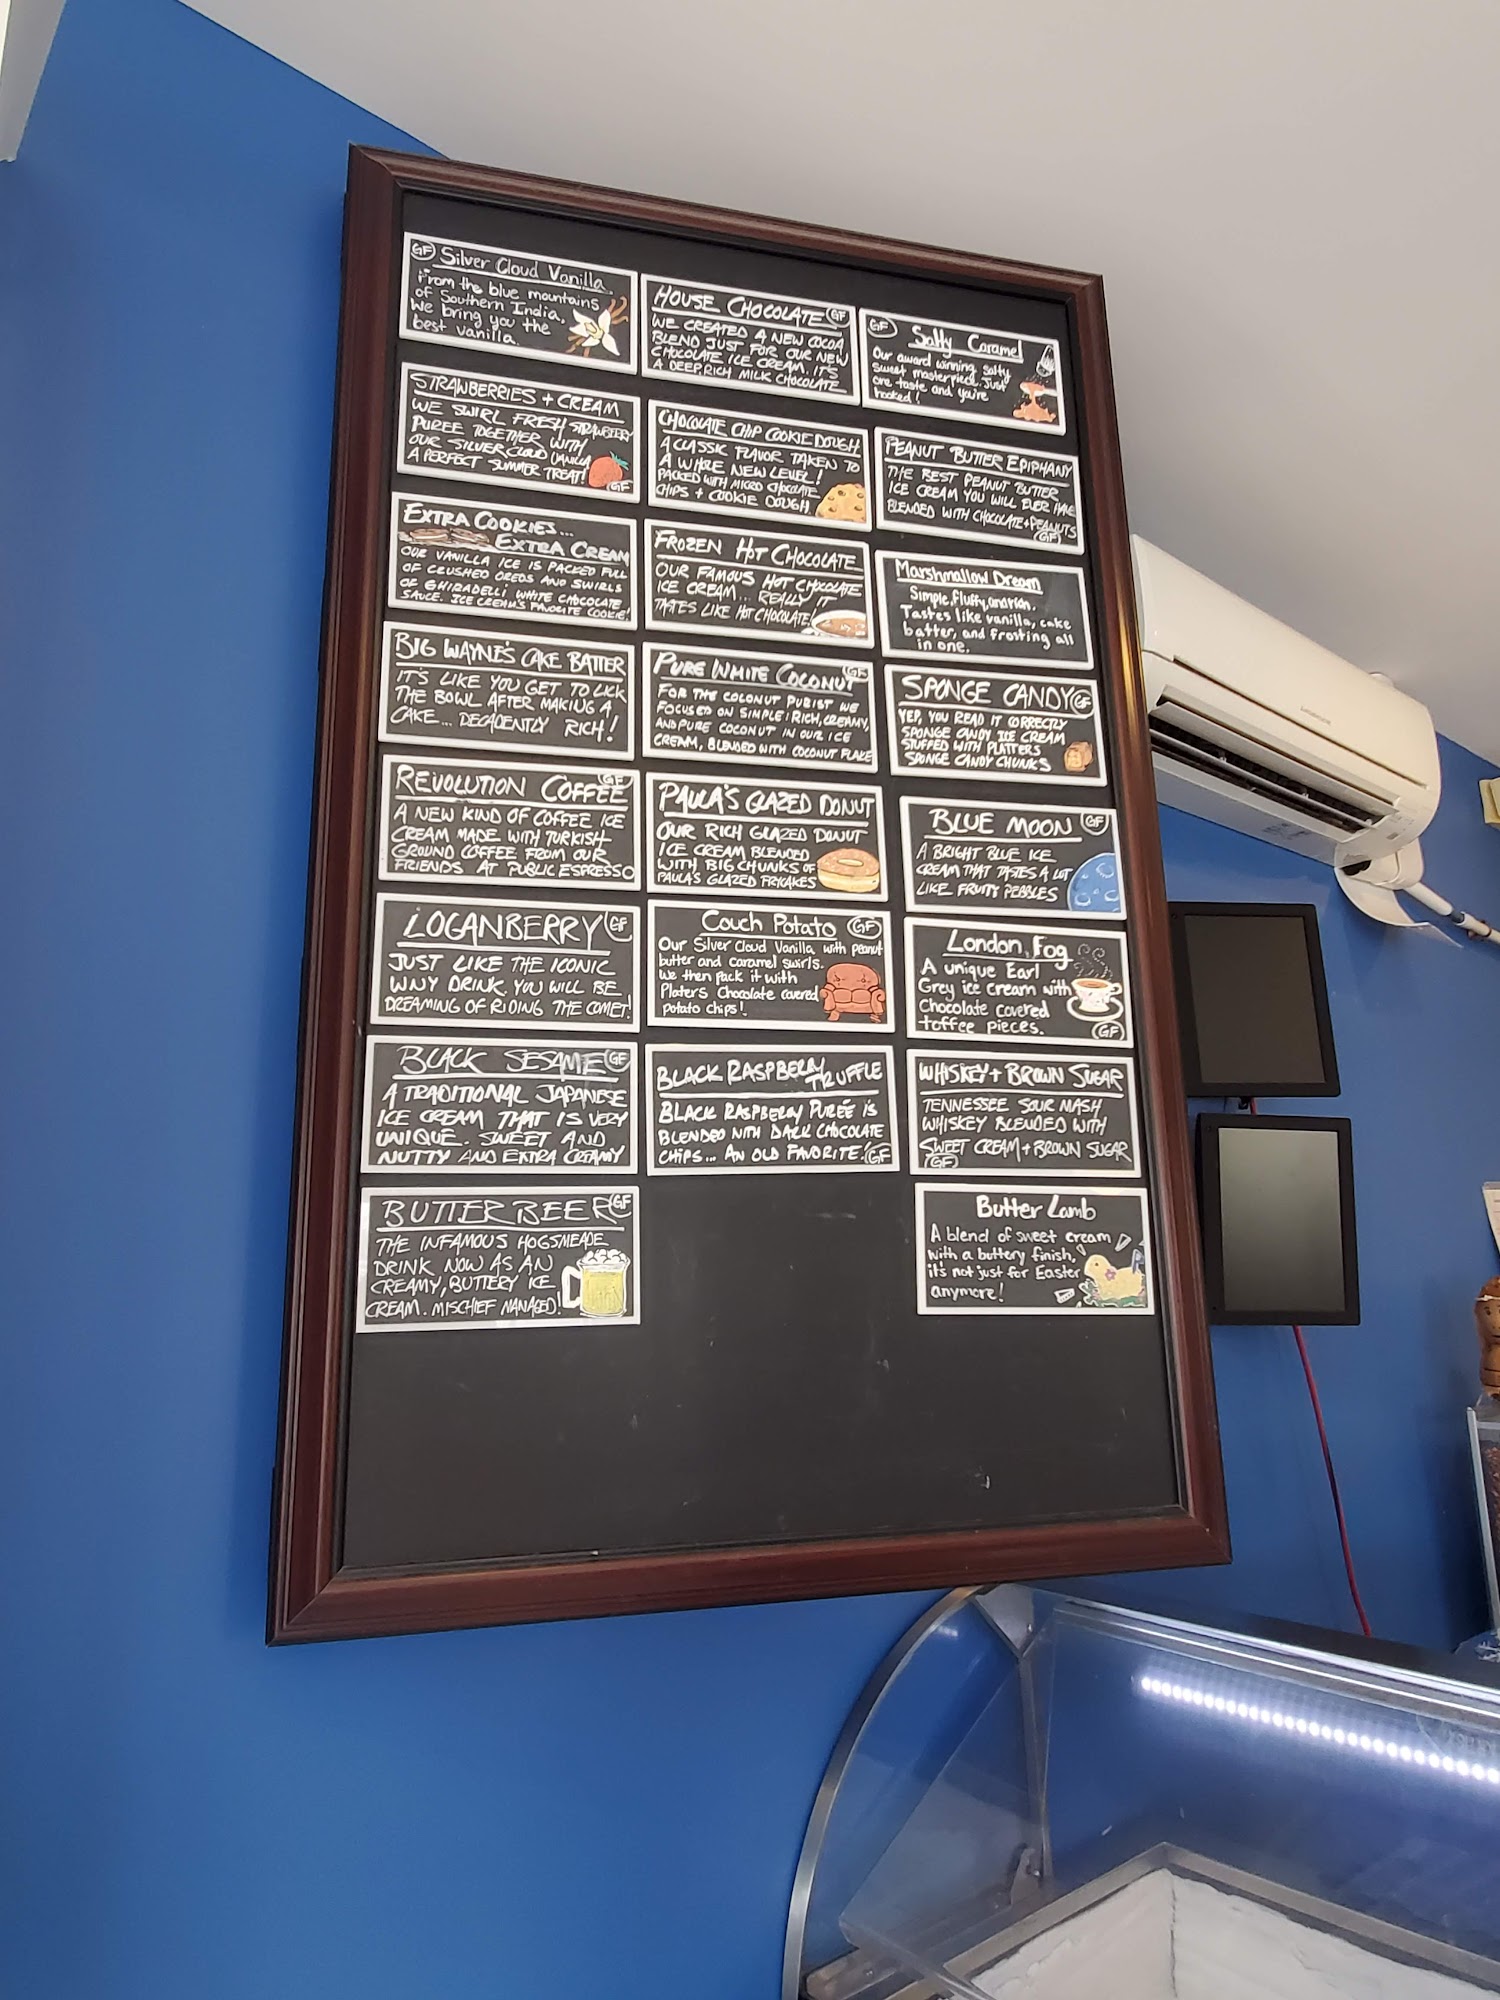 GF Silver Cloud Vanilla
From the blue mountains
of Southern India,
we bring you the
best vanilla.
STRAWBERRIES + CREAM
WE SWIRL FRESH STRAWBERRY
PUREE TOGETHER WITH
OUR SILVER CLOUD VANILLA
A PERFECT SUMMER TREAT!
GF
EXTRA COOKIES...
EXTRA CREAM
OUR VANILLA ICE IS PACKED FULL
OF CRUSHED OREOS AND SWIRLS
OF GHIRADELLI WHITE CHOCOLATE
SAUCE. ICE CREAM'S FAVORITE COOKIE!
BIG WAYNE'S CAKE BATTER
IT'S LIKE YOU GET TO LICK
THE BOWL AFTER MAKING A
CAKE... DECADENTLY RICH!
REVOLUTION COFFEE GF
A NEW KIND OF COFFEE ICE
CREAM MADE WITH TURKISH
GROUND COFFEE FROM OUR
FRIENDS AT PUBLIC ESPRESSO
LOGANBERRY GF
JUST LIKE THE ICONIC
WNY DRINK. YOU WILL BE
DREAMING OF RIDING THE COMET!
BLACK SESAME GF
A TRADITIONAL JAPANESE
ICE CREAM THAT IS VERY
UNIQUE. SWEET AND
NUTTY AND EXTRA CREAMY
BUTTER BEER GF
THE INFAMOUS HOGSMEADE
DRINK NOW AS AN
CREAMY, BUTTERY ICE
CREAM. MISCHIEF MANAGED!
HOUSE CHOCOLATE GF
WE CREATED A NEW COCOA
BLEND JUST FOR OUR NEW
CHOCOLATE ICE CREAM. IT'S
A DEEP, RICH MILK CHOCOLATE
CHOCOLATE CHIP COOKIE DOUGH
A CLASSIC FLAVOR TAKEN TO
A WHOLE NEW LEVEL!
PACKED WITH MICRO CHOCOLATE
CHIPS + COOKIE DOUGH
FROZEN HOT CHOCOLATE
OUR FAMOUS HOT CHOCOLATE
ICE CREAM... REALLY IT
TASTES LIKE HOT CHOCOLATE!
PURE WHITE COCONUT GF
FOR THE COCONUT PURIST WE
FOCUSED ON SIMPLE; RICH, CREAMY,
AND PURE COCONUT IN OUR ICE
CREAM, BLENDED WITH COCONUT FLAKE
PAULA'S GLAZED DONUT
OUR RICH GLAZED DONUT
ICE CREAM BLENDED
WITH BIG CHUNKS OF
PAULA'S GLAZED FRYCAKES
Couch Potato GF
Our Silver Cloud Vanilla with peanut
butter and caramel swirls.
We then pack it with
Platers Chocolate covered
potato chips!
BLACK RASPBERRY
TRUFFLE
BLACK RASPBERRY PURÉE IS
BLENDED WITH DARK CHOCOLATE
CHIPS... AN OLD FAVORITE! GF
GF Salty Caramel
Our award winning, salty
sweet masterpiece. Just
one taste and you're
hooked!
PEANUT BUTTER EPIPHANY
THE BEST PEANUT BUTTER
ICE CREAM YOU WILL EVER HAVE
BLENDED WITH CHOCOLATE + PEANUTS
GF
Marshmallow Dream
Simple, fluffy, and rich.
Tastes like vanilla, cake
batter, and frosting all
in one.
SPONGE CANDY GF
YEP, YOU READ IT CORRECTLY
SPONGE CANDY ICE CREAM
STUFFED WITH PLATTERS
SPONGE CANDY CHUNKS
BLUE MOON GF
A BRIGHT BLUE ICE
CREAM THAT TASTES A LOT
LIKE FRUITY PEBBLES
London Fog
A unique Earl
Grey ice cream with
Chocolate covered
toffee pieces.
GF
WHISKEY + BROWN SUGAR
TENNESSEE SOUR MASH
WHISKEY BLENDED WITH
SWEET CREAM + BROWN SUGAR
GF
Butter Lamb
A blend of sweet cream
with a buttery finish,
it's not just for Easter
anymore!